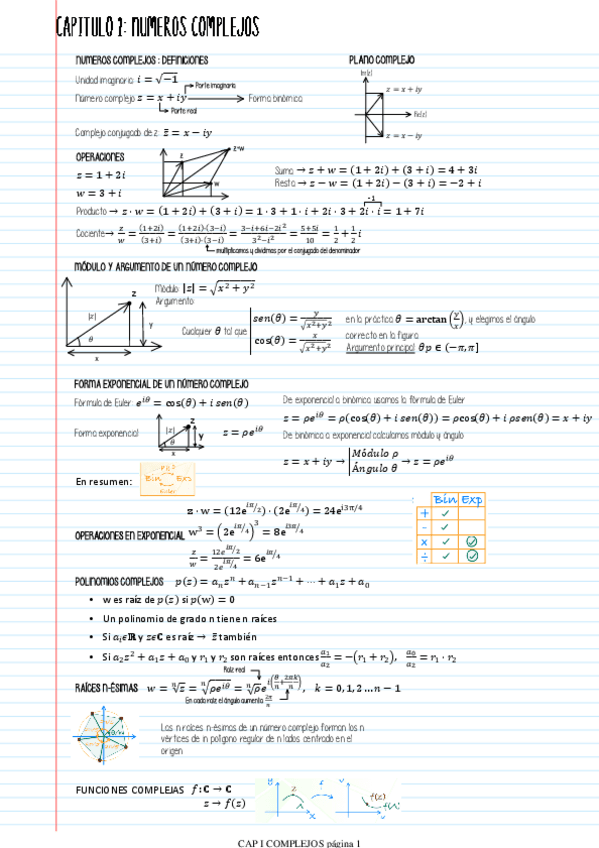 CAPITULO 1: NUMEROS COMPLEJOS
NUMEROS COMPLEJOS : DEFINICIONES
PLANO COMPLEJO
Unidad imaginaria: i = √−1
Parte imaginaria
Im(z)
z = x + iy
Número complejo z = x + iy → Forma binómica
Parte real
Re(z)
Complejo conjugado de z: z̄ = x − iy
z = x − iy
OPERACIONES
z
z+w
w
z = 1 + 2i
w = 3 + i
Suma → z + w = (1 + 2i) + (3 + i) = 4 + 3i
Resta → z − w = (1 + 2i) − (3 + i) = −2 + i
-1
Producto → z · w = (1 + 2i) + (3 + i) = 1 · 3 + 1 · i + 2i · 3 + 2i · i = 1 + 7i
Cociente → z/w = (1+2i)/(3+i) = (1+2i)·(3−i)/(3+i)·(3−i) = 3−i+6i−2i²/3²−i² = 5+5i/10 = 1/2 + 1/2 i
multiplicamos y dividimos por el conjugado del denominador
MÓDULO Y ARGUMENTO DE UN NÚMERO COMPLEJO
Módulo: |z| = √x² + y²
Argumento:
z
|z|
y
θ
x
Cualquier θ tal que
sen(θ) = y/√x²+y²
cos(θ) = x/√x²+y²
en la práctica θ = arctan(y/x), y elegimos el ángulo
correcto en la figura.
Argumento principal θp ∈ (−π, π]
FORMA EXPONENCIAL DE UN NÚMERO COMPLEJO
Fórmula de Euler: e^iθ = cos(θ) + i sen(θ)
De exponencial a binómica usamos la fórmula de Euler
z = ρe^iθ = ρ(cos(θ) + i sen(θ)) = ρcos(θ) + i ρsen(θ) = x + iy
Forma exponencial
z
|z|
y
θ
x
z = ρe^iθ
De binómica a exponencial calculamos módulo y ángulo
z = x + iy → Módulo ρ Ángulo θ → z = ρe^iθ
En resumen:
Bin Exp
Euler
z · w = (12e^iπ/2) · (2e^iπ/4) = 24e^i3π/4
Bin Exp
+ ✓
- ✓
x ✓ ✓
÷ ✓ ✓
OPERACIONES EN EXPONENCIAL w³ = (2e^iπ/4)³ = 8e^i3π/4
z/w = 12e^iπ/2/2e^iπ/4 = 6e^iπ/4
POLINOMIOS COMPLEJOS p(z) = aₙzⁿ + aₙ₋₁zⁿ⁻¹ + ⋯ + a₁z + a₀
• w es raíz de p(z) si p(w) = 0
• Un polinomio de grado n tiene n raíces
• Si aᵢϵℝ y zϵℂ es raíz → z̄ también
• Si a₂z² + a₁z + a₀ y r₁ y r₂ son raíces entonces a₁/a₂ = −(r₁ + r₂), a₀/a₂ = r₁ · r₂
Raíz real
RAÍCES N-ÉSIMAS w = ⁿ√z = ⁿ√ρe^iθ = ⁿ√ρ e^i(θ/n + 2πk/n), k = 0, 1, 2 … n − 1
En cada raíz el ángulo aumenta 2π/n
Las n raíces n-ésimas de un número complejo forman los n
vértices de in polígono regular de n lados centrado en el
origen
FUNCIONES COMPLEJAS f: C → C
z → f(z)
z
f
f(z)
CAP I COMPLEJOS página 1